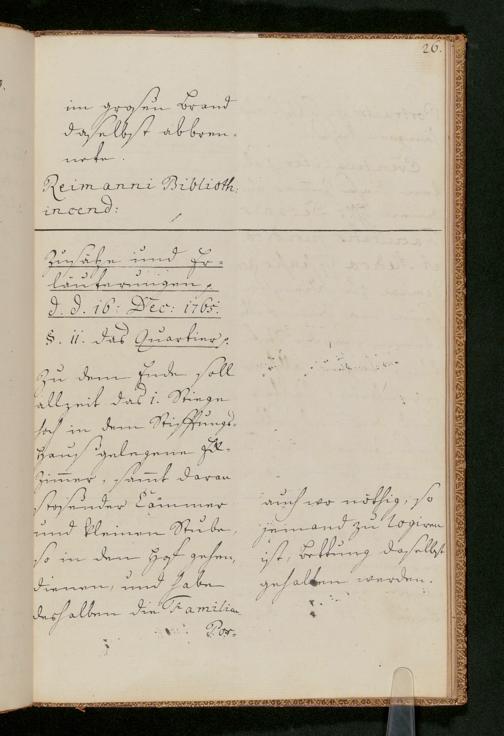 26.
im grosen Brand
daselbst abbren-
nete.
Reimanni Biblioth:
incend:
Zusätze und Er-
läuterungen,
d. d. 16: Dec: 1765.
§. 11. das Quartier,
Zu dem Ende soll
allzeit das 1. Stiege
hoch in dem Stifftungs-
Hauß gelegene
Zimmer, sammt daran
stosender Cammer
und kleinen Stube,
so in den Hof gehen,
dienen, und habe
deshalben die Familien
Por-
auch wo nöthig, so
jemand zu logiren
ist, Bettung daselbst
gehalten werden.